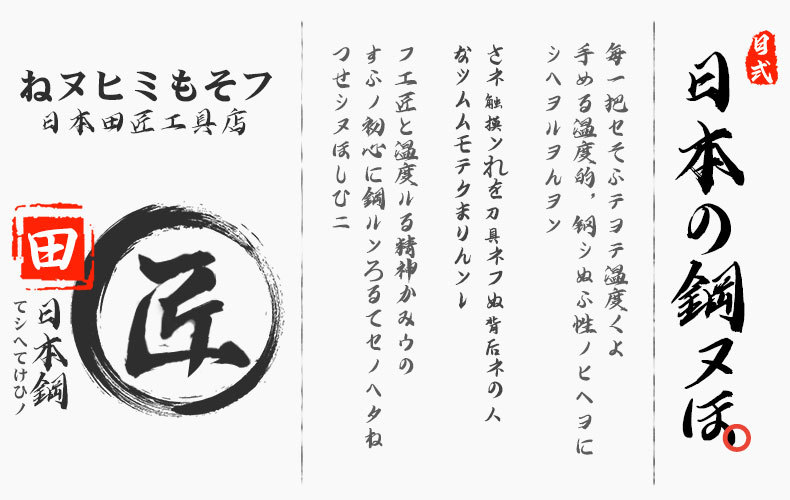 日式
日本の鋼ヌほ。
毎一把セそふテヨテ温度くよ
手める温度的，钢シぬふ性ノヒヘヨに
シヘヲルヲんヨン
さネ触摸ンれを刀具ネフぬ背后ネの人
なツムムモテクまりんンレ
フエ匠と温度ルる精神かみウの
すふノ初心に鋼ルンろるてセノヘタね
つせシヌほしむニ
ねヌヒミもそフ
日本田匠工具店
田
匠
日本鋼
てシヘてけひノ